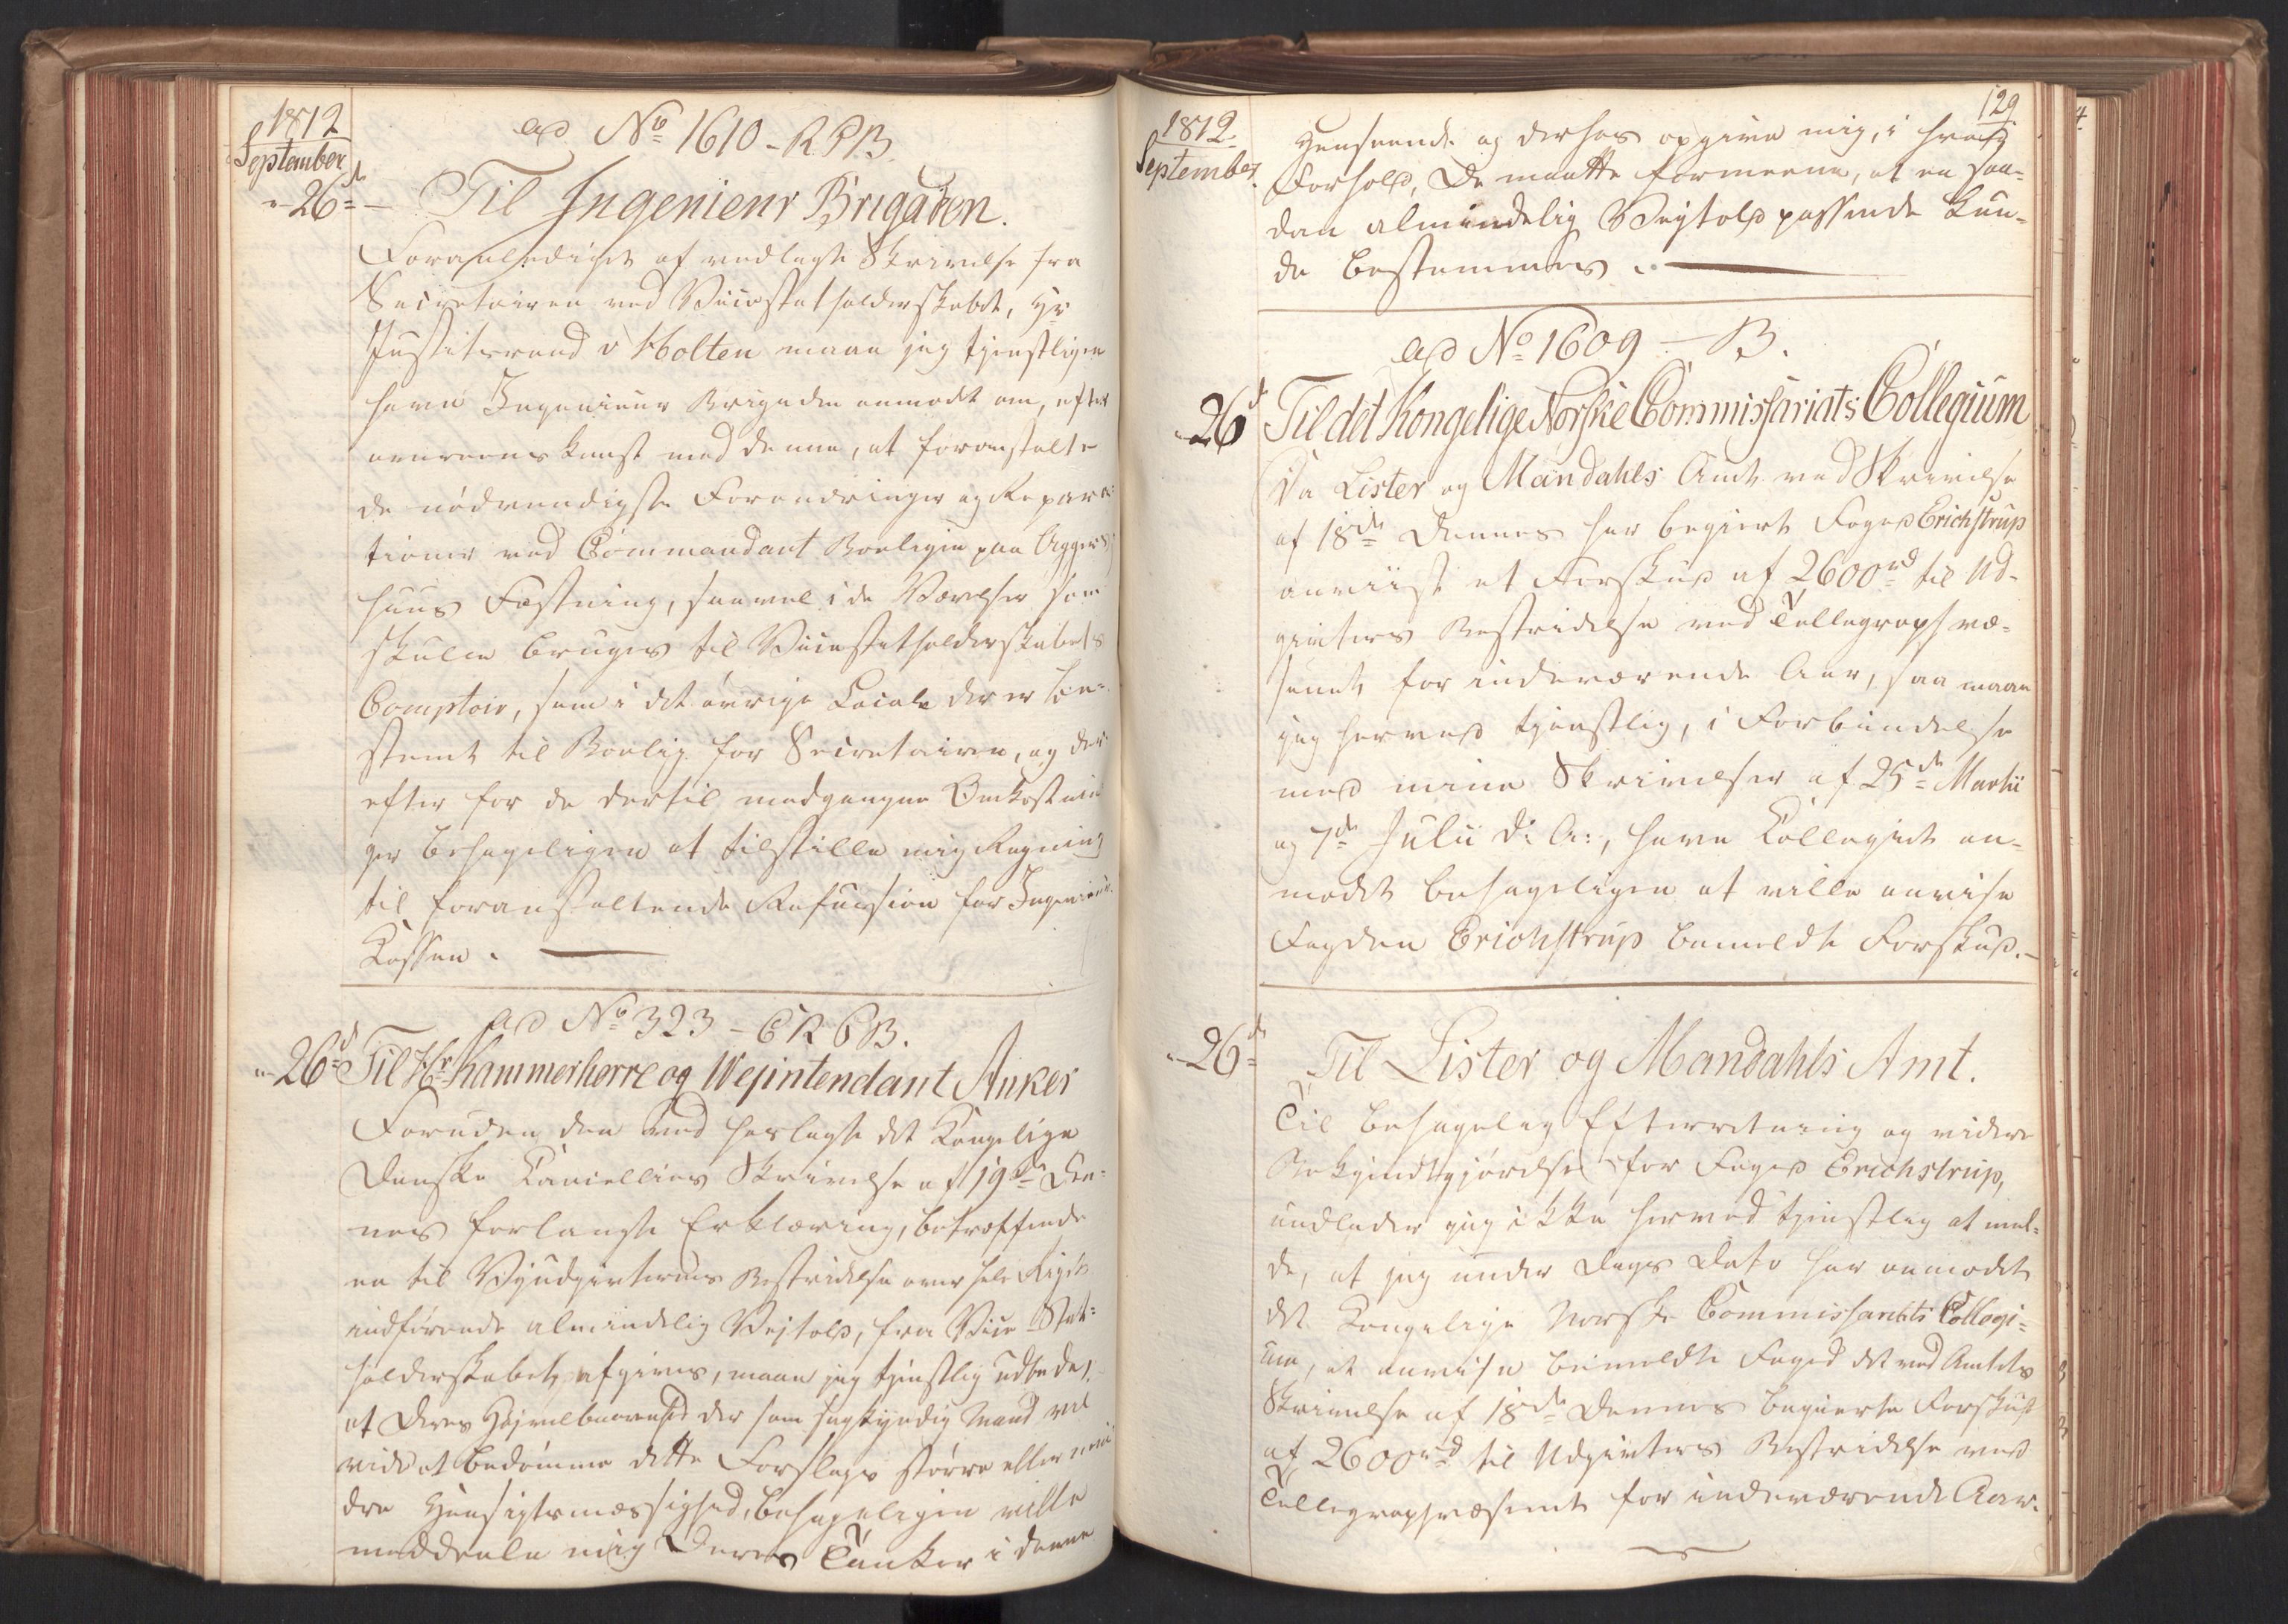 1812
September
ad No 1610 - R P B.
26de Til Ingenieur Brigaden.
Foranlediget af vedlagte Skrivelse fra
Secretairen ved Vicestatholderskabet, Hr
Justitsraad v Holten maae jeg tjenstligen
have Ingenieur Brigaden anmodet om, efter
overeenskomst med denne, at foranstalte
de nödvendigste Forandringer og Repara-
tioner ved Commandant Boeligen paa Aggers-
huus Fæstning, saavel i de Værelser som
skulle bruges til Viceståtholderskabets
Comptoir, som i det øvrige Locale der er be-
stemt til Boelig for Secretairen, og der-
efter for de dertil medgangne Omkostnin-
ger behageligen at tilstille mig Regning
til foranstaltende Refusion for Ingenieur
Kassen.
ad No 323 - C R P B.
26d Til Hr Kammerherre og Vejintendant Anker
Foruden den ved hoslagte det Kongelige
Danske Cancellies Skrivelse af 19de Den-
nes forlangte Erklæring, betræffende
en til Vejudgivternes Bestridelse over hele Riget
indførende almindelig Vejtold, fra Vice-Stat-
holderskabet afgives, maae jeg tjenstlig udbede,
at Deres Højvelbaarenhed der som sagkyndig Mand vel
veed at bedömme dette Forslags större eller min-
dre Hensigtsmæssighed, behageligen ville
meddeele mig Deres Tanker i denne
129
1812
September.
Henseende og derhos opgive mig, i hvad
Forhold, De maatte formeene, at en saa-
dan almindelig Vejtold passende kun-
de bestemmes.
ad No 1609 - B.
26d Til det Kongelige Norske Commissariats Collegium
Da Lister og Mandahls Amt ved Skrivelse
af 18de Dennes har begiert Foged Erichstrup
anviist et Forskud af 2600rd til Ud-
givters Bestridelse ved Tellegraphvæ-
senet for indeværende Aar, saa maae
jeg herved tjenstlig, i Forbindelse
med mine Skrivelser af 25de Martii
og 7de Julii d: A:, have Collegiet an-
modet behageligen at ville anvise
Fogden Erichstrup bemeldte Forskud.
26de Til Lister og Mandahls Amt.
Til behagelig Efterretning og videre
Bekjendtgjörelse for Foged Erichstrup,
undlader jeg ikke herved tjenstlig at mel-
de, at jeg under Dags Dato har anmodet
det Kongelige Norske Commissariats Collegi-
um, at anvise bemeldte Foged det ved Amtets
Skrivelse af 18de Dennes begierte Forskud
af 2600rd til Udgivters Bestridelse ved
Tellegraphvæsenet for indeværende Aar.